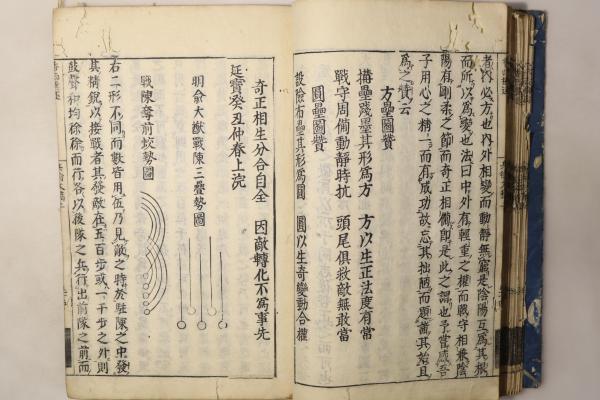 者內必方也內外相變而動靜無窮是陰陽互爲其根
而所以爲變也法曰中外有輕重之權而戰守相兼陰
陽有剛柔之節而奇正相備即是此之謂也予嘗感吾
子用心之精一而有成功故忘其拙陋而題蕭其始且
爲之贊云
方壘圖贊
溝壘殘壘其形爲方 方以生正法度有當
戰守周備動靜時抗 頭尾俱救敵無敢當
圓壘圖贊
設險布壘其形爲圓 圓以生奇變動合權
奇正相生分合自全 因敵轉化不爲事先
延寶癸丑仲春上浣
明俞大猷戰陳三疊勢圖
戰陳奪前蛟勢圖
右二形不同而數皆用伍乃見敵之時於駐陳之中發
其精銳以接戰者其發敵在五百步或一千步之外則
鼓聲和均徐徐而行各以後隊之兵行出前隊之前而